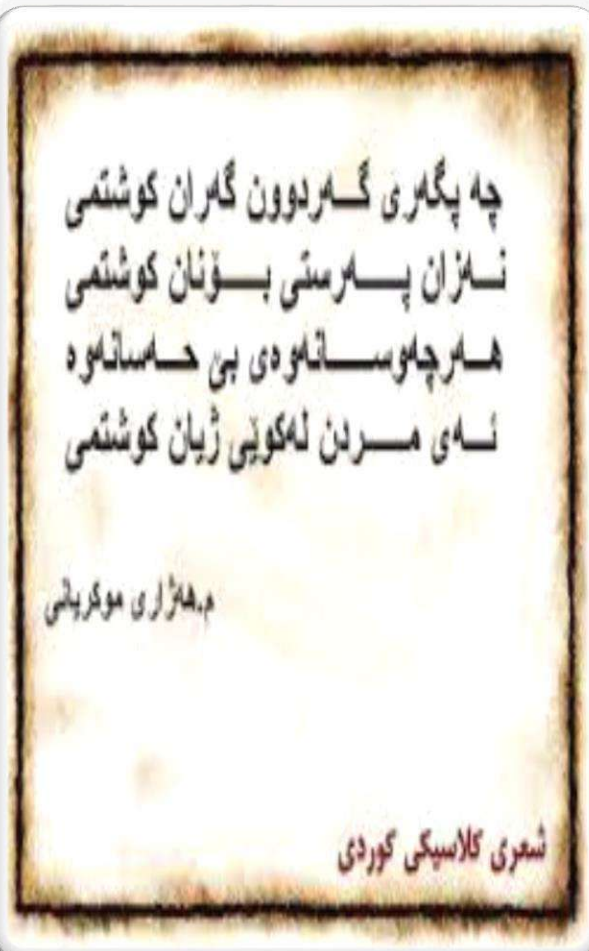 چه پگەری گەردوون گەران کوشتمی
نەزان پەرستی بۆنان کوشتمی
هەرچەوسانەوەی بێ حەسانەوە
ئەی مردن لەکوێی ژیان کوشتمی
م.هەژاری موکریانی
شعری کلاسیکی کوردی